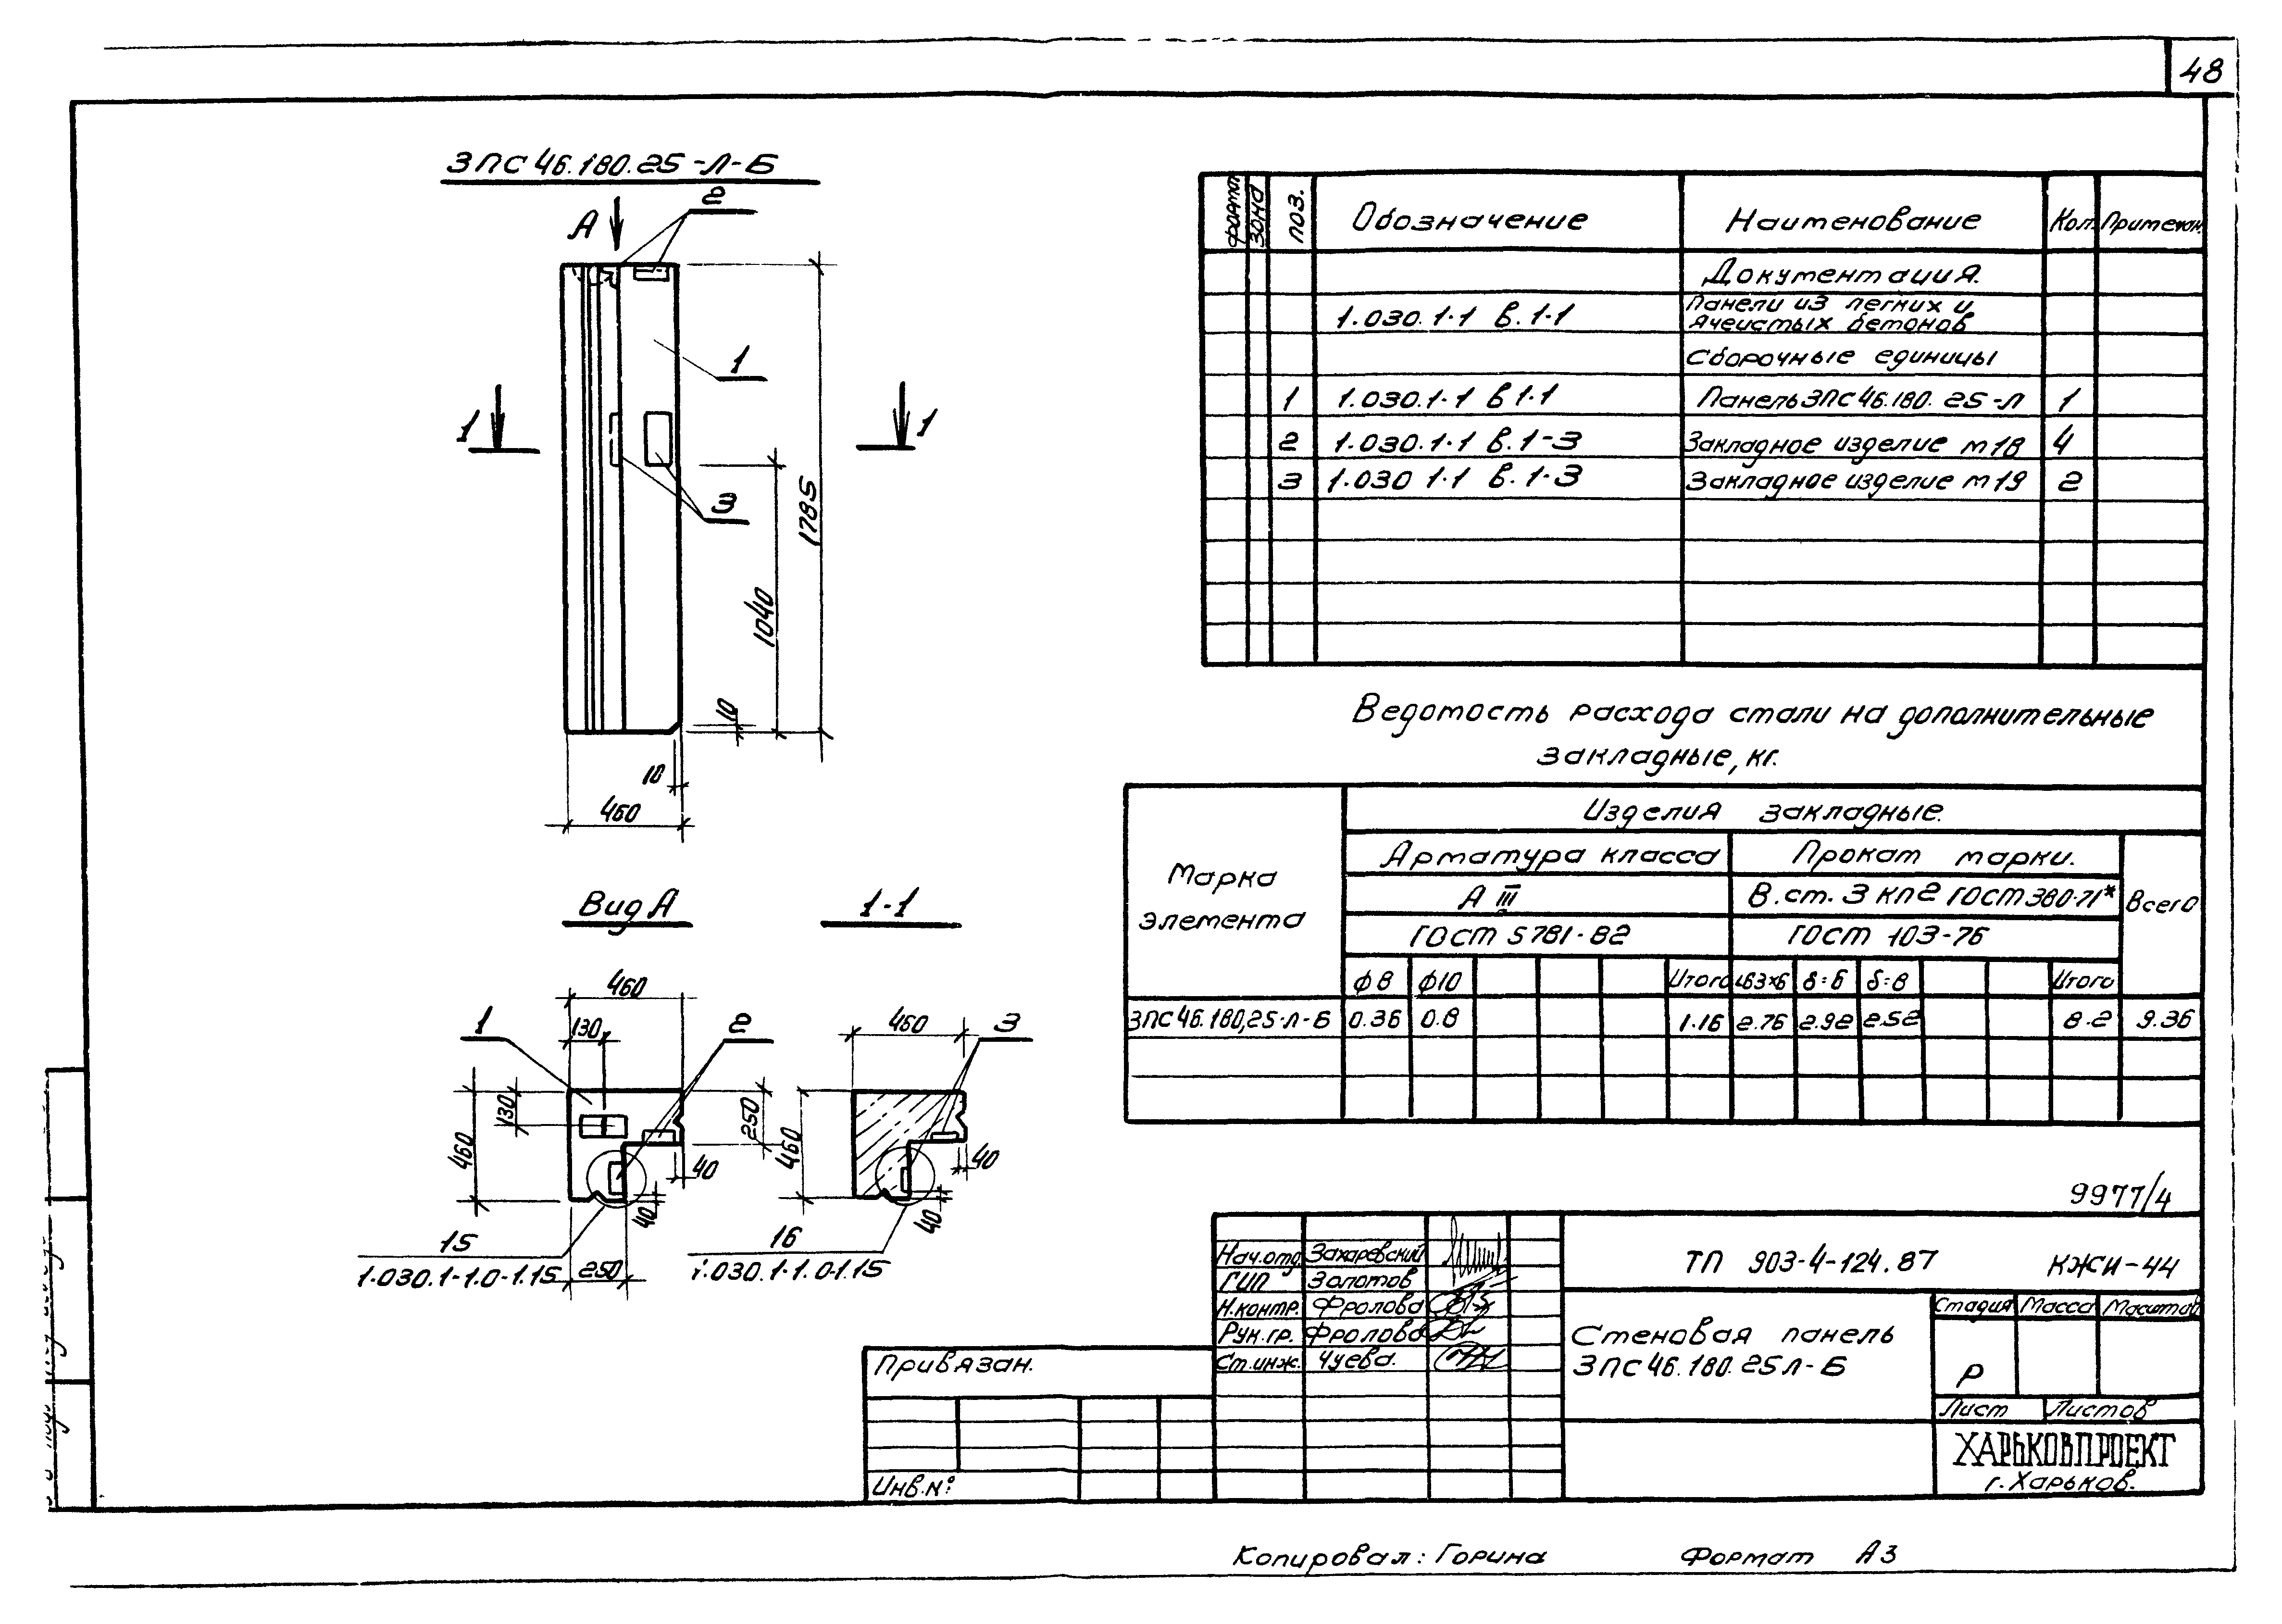 48
3ПС 46.180.25-Л-Б
А
2
1
1
1
3
1785
1040
10
10
460
Вид А
1-1
460
130
1
2
130
460
250
40
40
15
1.030.1-1.0-1.15
250
460
3
460
40
40
16
1.030.1-1.0-1.15
Формат Зона Поз. Обозначение Наименование Кол. Примечан.
Документация.
1.030.1-1 в.1-1 Панели из легких и
ячеистых бетонов
Сборочные единицы
1 1.030.1-1 в 1-1 Панель 3ПС 46.180.25-Л 1
2 1.030.1-1 в.1-3 Закладное изделие м18 4
3 1.030 1-1 в.1-3 Закладное изделие м19 2
Ведомость расхода стали на дополнительные
закладные, кг.
Марка
элемента
Изделия закладные.
Арматура класса Прокат марки. Всего
А III В.ст.3 кп2 ГОСТ 380-71*
ГОСТ 5781-82 ГОСТ 103-76
ф8 ф10 Итого δ=6 δ=8 Итого
3ПС 46.180,25-Л-Б 0.36 0.8 1.16 2.76 2.92 2.52 8.2 9.36
9977/4
Нач.отд. Захаревский
ГИП Золотов
Н.контр. Фролова
Рук.гр. Фролова
Ст.инж. Чуева.
ТП 903-4-124.87 КЖИ-44
Стеновая панель
3ПС 46.180.25Л-Б
Стадия Масса Масштаб
Р
Лист Листов
ХАРЬКОВПРОЕКТ
г.Харьков.
Привязан.
Инв.№
Копировал: Горина Формат А3